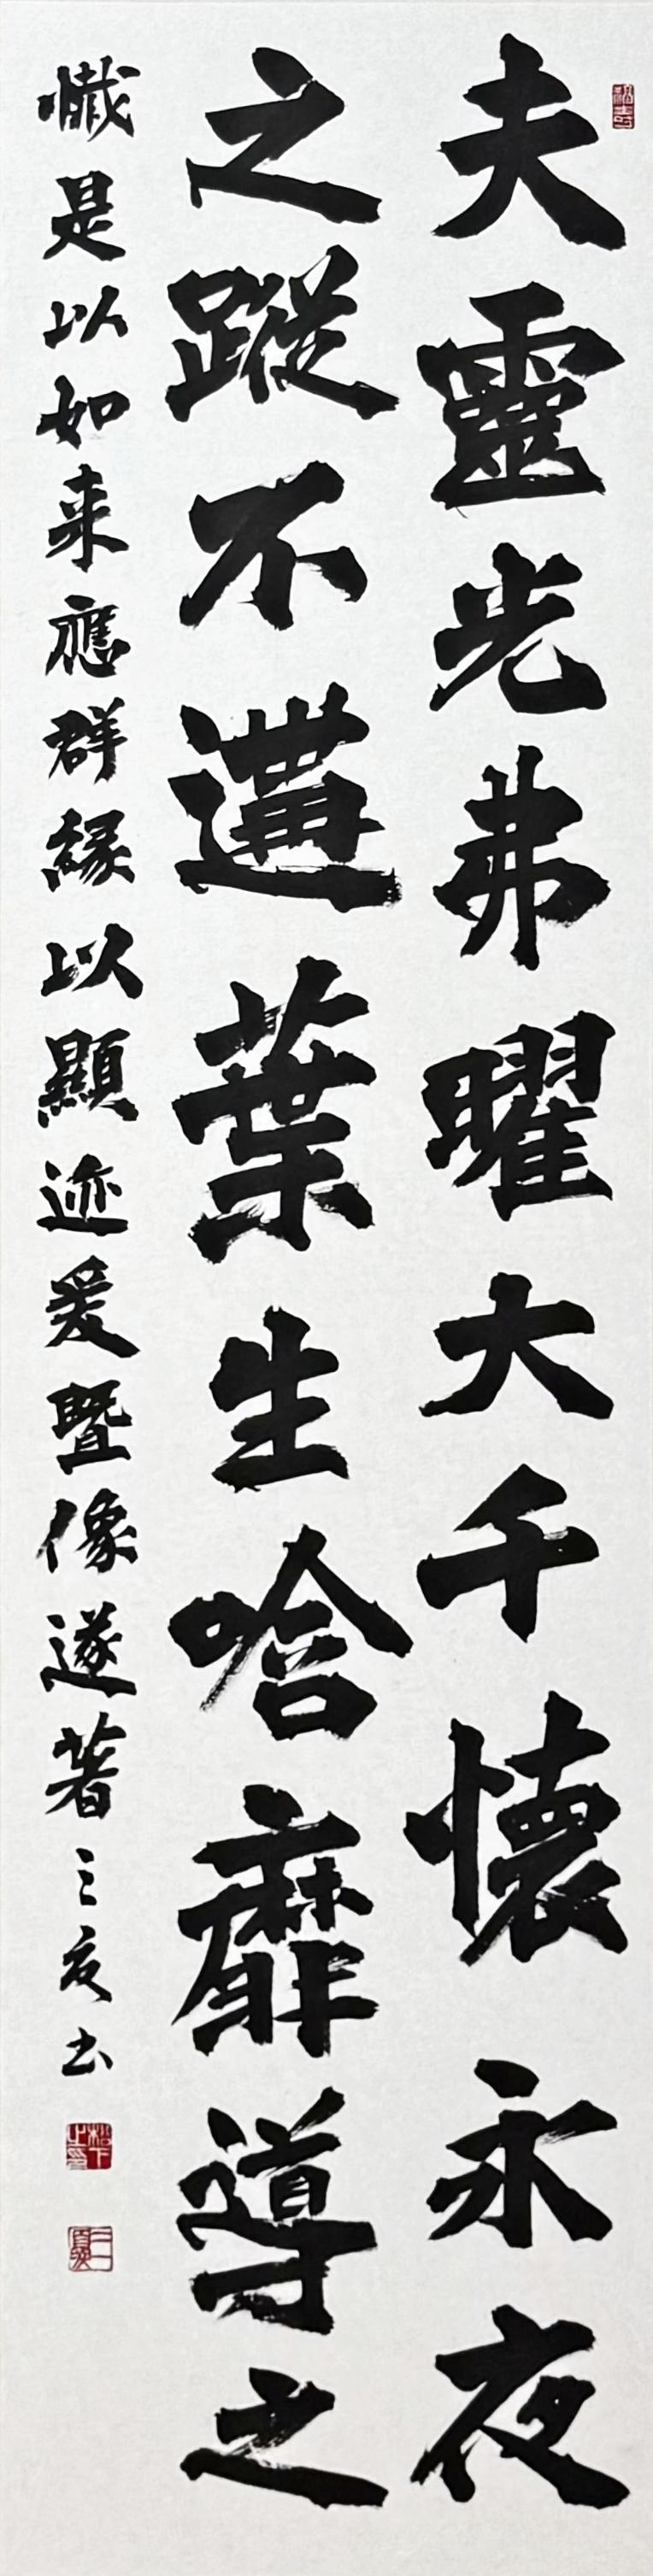 夫靈光弗曜大千懷永夜
之蹤不遘葉生唅靡導之
懺是以如来應群緣以顯迹爰暨像遂著